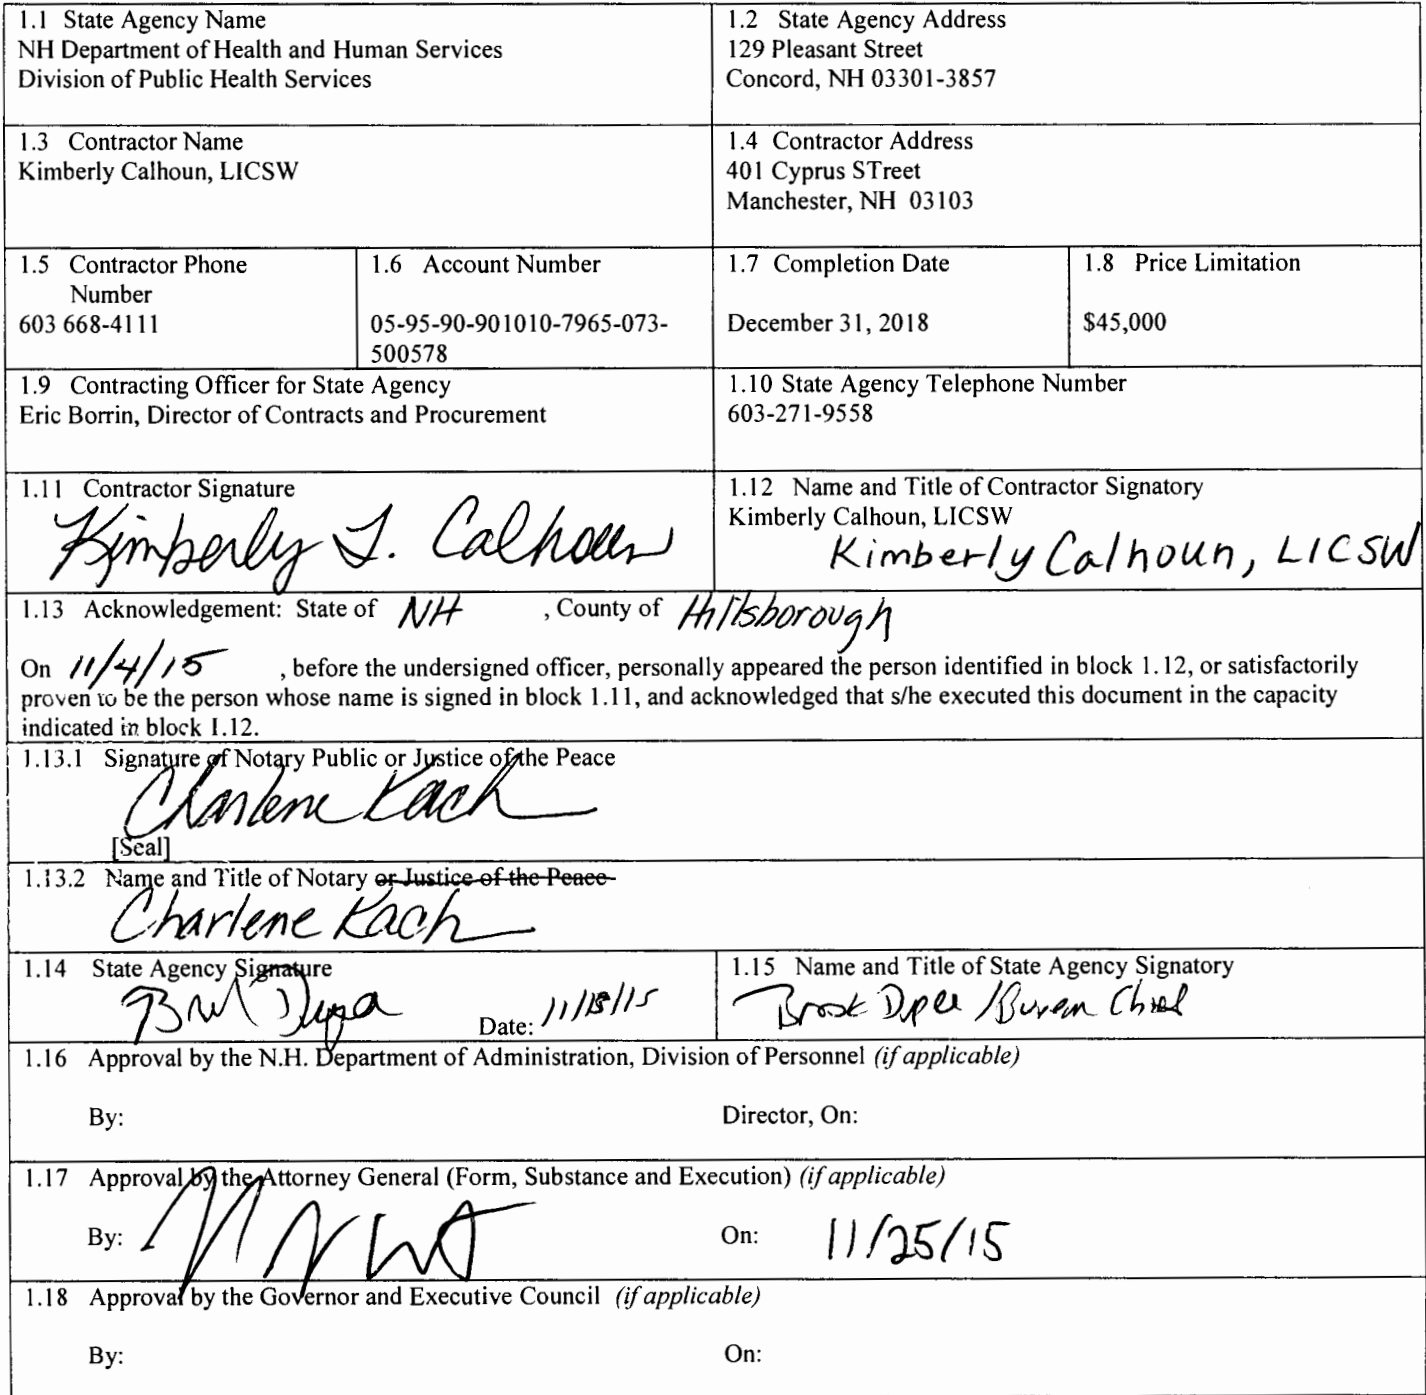 1.1 State Agency Name
NH Department of Health and Human Services
Division of Public Health Services
1.2 State Agency Address
129 Pleasant Street
Concord, NH 03301-3857
1.3 Contractor Name
Kimberly Calhoun, LICSW
1.4 Contractor Address
401 Cyprus STreet
Manchester, NH 03103
1.5 Contractor Phone
Number
603 668-4111
1.6 Account Number
05-95-90-901010-7965-073-
500578
1.7 Completion Date
December 31, 2018
1.8 Price Limitation
$45,000
1.9 Contracting Officer for State Agency
Eric Borrin, Director of Contracts and Procurement
1.10 State Agency Telephone Number
603-271-9558
1.11 Contractor Signature
Kimberly J. Calhoun
1.12 Name and Title of Contractor Signatory
Kimberly Calhoun, LICSW
Kimberly Calhoun, LICSW
1.13 Acknowledgement: State of NH , County of Hillsborough
On 11/4/15 , before the undersigned officer, personally appeared the person identified in block 1.12, or satisfactorily
proven to be the person whose name is signed in block 1.11, and acknowledged that s/he executed this document in the capacity
indicated in block 1.12.
1.13.1 Signature of Notary Public or Justice of the Peace
Charlene Kach
[Seal]
1.13.2 Name and Title of Notary or Justice of the Peace
Charlene Kach
1.14 State Agency Signature
Date: 11/18/15
1.15 Name and Title of State Agency Signatory
Brook Dupee /Bureau Chief
1.16 Approval by the N.H. Department of Administration, Division of Personnel (if applicable)
By:
Director, On:
1.17 Approval by the Attorney General (Form, Substance and Execution) (if applicable)
By:
On: 11/25/15
1.18 Approval by the Governor and Executive Council (if applicable)
By:
On: